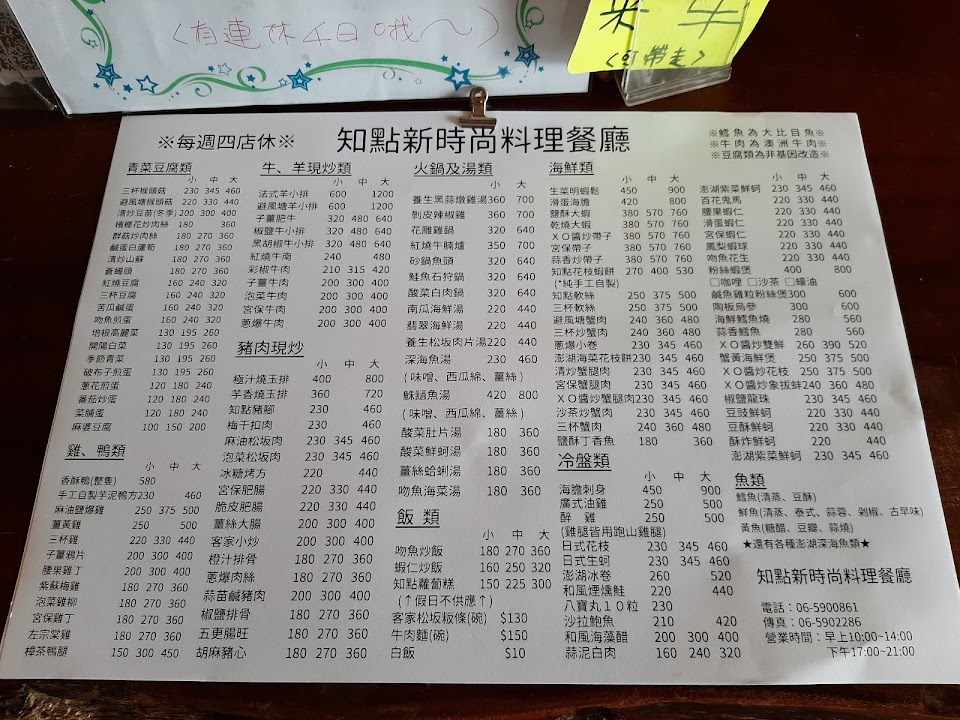 (有連休4日哦～)
(可帶走)
※每週四店休※
知點新時尚料理餐廳
※鱈魚為大比目魚※
※牛肉為澳洲牛肉※
※豆腐類為非基因改造※
青菜豆腐類
小 中 大
三杯猴頭菇 230 345 460
避風塘猴頭菇 220 330 440
清炒豆苗(冬季) 200 300 400
檳榔花炒肉絲 180 360
群菇炒肉絲 180 270 360
鹹蛋白蘆筍 180 270 360
清炒山蘇 180 270 360
蒼蠅頭 180 270 360
紅燒豆腐 160 240 320
三杯豆腐 160 240 320
苦瓜鹹蛋 160 240 320
吻魚煎蛋 160 240 320
培根高麗菜 130 195 260
開陽白菜 130 195 260
季節青菜 130 195 260
破布子煎蛋 130 195 260
蔥花煎蛋 120 180 240
番茄炒蛋 120 180 240
菜脯蛋 120 180 240
麻婆豆腐 100 150 200
雞、鴨類
小 中 大
香酥鴨(整隻) 580
手工自製芋泥鴨方 230 460
麻油鹽爆雞 250 375 500
薑黃雞 250 500
三杯雞 220 330 440
子薑鴉片 200 300 400
腰果雞丁 200 300 400
紫蘇梅雞 180 270 360
泡菜雞柳 180 270 360
宮保雞丁 180 270 360
左宗棠雞 180 270 360
樟茶鴨腿 150 300 450
牛、羊現炒類
小 中 大
法式羊小排 600 1200
避風塘羊小排 600 1200
子薑肥牛 320 480 640
椒鹽牛小排 320 480 640
黑胡椒牛小排 320 480 640
紅燒牛南 240 480
彩椒牛肉 210 315 420
子薑牛肉 200 300 400
泡菜牛肉 200 300 400
宮保牛肉 200 300 400
蔥爆牛肉 200 300 400
豬肉現炒
小 中 大
極汁燒玉排 400 800
芋香燒玉排 360 720
知點豬腳 230 460
梅干扣肉 230 460
麻油松坂肉 230 345 460
泡菜松坂肉 230 345 460
冰糖烤方 220 440
宮保肥腸 220 330 440
脆皮肥腸 220 330 440
薑絲大腸 200 300 400
客家小炒 200 300 400
橙汁排骨 180 270 360
蔥爆肉絲 180 270 360
蒜苗鹹豬肉 200 300 400
椒鹽排骨 180 270 360
五更腸旺 180 270 360
胡麻豬心 180 270 360
火鍋及湯類
小 中 大
養生黑蒜燉雞湯 360 700
剝皮辣椒雞 360 700
花雕雞鍋 320 640
紅燒牛腩爐 350 700
砂鍋魚頭 320 640
鮭魚石狩鍋 320 640
酸菜白肉鍋 320 640
南瓜海鮮湯 220 440
翡翠海鮮湯 220 440
養生松坂肉片湯 220 440
深海魚湯 230 460
(味噌、西瓜綿、薑絲)
鮢𩺬魚湯 420 800
(味噌、西瓜綿、薑絲)
酸菜肚片湯 180 360
酸菜鮮蚵湯 180 360
薑絲蛤蜊湯 180 360
吻魚海菜湯 180 360
飯 類
小 中 大
吻魚炒飯 180 270 360
蝦仁炒飯 160 250 320
知點蘿蔔糕 150 225 300
(↑假日不供應↑)
客家松坂粄條(碗) $130
牛肉麵(碗) $150
白飯 $10
海鮮類
小 中 大
生菜明蝦鬆 450 900
滑蛋海膽 420 800
鹽酥大蝦 380 570 760
乾燒大蝦 380 570 760
ＸＯ醬炒帶子 380 570 760
宮保帶子 380 570 760
蒜香炒帶子 380 570 760
知點花枝蝦餅 270 400 530
(*純手工自製)
知點軟絲 250 375 500
三杯軟絲 250 375 500
避風塘蟹肉 240 360 480
三杯炒蟹肉 240 360 480
蔥爆小卷 230 345 460
澎湖海菜花枝餅 230 345 460
清炒蟹腿肉 230 345 460
宮保蟹腿肉 230 345 460
ＸＯ醬炒蟹腿肉 230 345 460
沙茶炒蟹肉 230 345 460
三杯蟹肉 240 360 480
鹽酥丁香魚 180 360
冷盤類
小 中 大
海膽刺身 450 900
廣式油雞 250 500
醉 雞 250 500
(雞腿皆用跑山雞腿)
日式花枝 230 345 460
日式生蚵 230 345 460
澎湖冰卷 260 520
和風煙燻鮭 220 440
八寶丸１０粒 230
沙拉鮑魚 210 420
和風海藻醋 200 300 400
蒜泥白肉 160 240 320
小 中 大
澎湖紫菜鮮蚵 230 345 460
百花鬼馬 220 330 440
腰果蝦仁 220 330 440
滑蛋蝦仁 220 330 440
宮保蝦仁 220 330 440
鳳梨蝦球 220 330 440
吻魚花生 220 330 440
粉絲蝦煲 400 800
□咖哩 □沙茶 □蠔油
鹹魚雞粒粉絲煲 300 600
陶板烏參 300 600
海鮮鱈魚燒 280 560
蒜香鱈魚 280 560
ＸＯ醬炒雙鮮 260 390 520
蟹黃海鮮煲 250 375 500
ＸＯ醬炒花枝 250 375 500
ＸＯ醬炒象拔蚌 240 360 480
椒鹽龍珠 230 345 460
豆豉鮮蚵 220 330 440
豆酥鮮蚵 220 330 440
酥炸鮮蚵 220 440
澎湖紫菜鮮蚵 230 345 460
魚類
鱈魚(清蒸、豆酥)
鮮魚(清蒸、泰式、蒜蓉、剁椒、古早味)
黃魚(糖醋、豆瓣、蒜燒)
★還有各種澎湖深海魚類★
知點新時尚料理餐廳
電話：06-5900861
傳真：06-5902286
營業時間：早上10:00~14:00
下午17:00~21:00